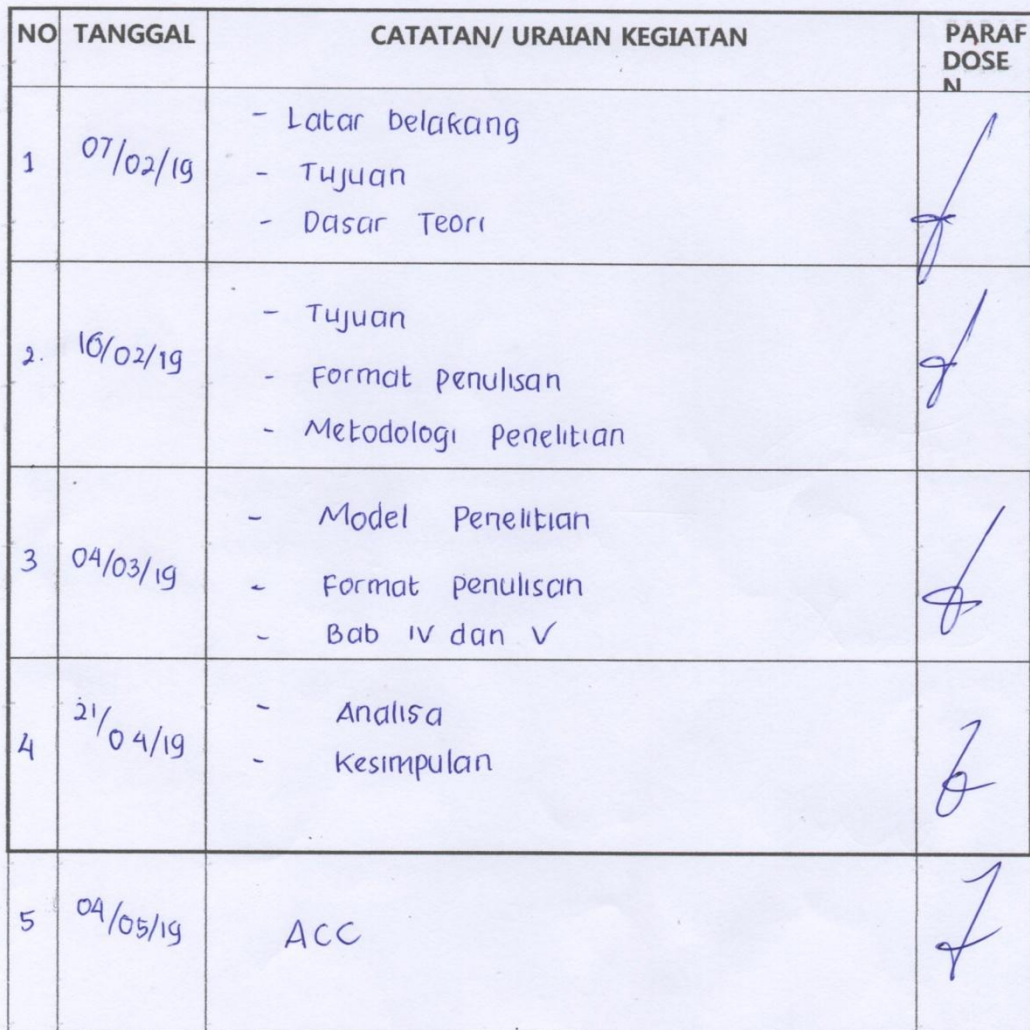 NO TANGGAL CATATAN/ URAIAN KEGIATAN PARAF
DOSE
N
1 07/02/19 - Latar belakang
- Tujuan
- Dasar Teori
2. 16/02/19 - Tujuan
- Format Penulisan
- Metodologi Penelitian
3 04/03/19 - Model Penelitian
- Format Penulisan
- Bab IV dan V
4 21/04/19 - Analisa
- Kesimpulan
5 04/05/19 ACC